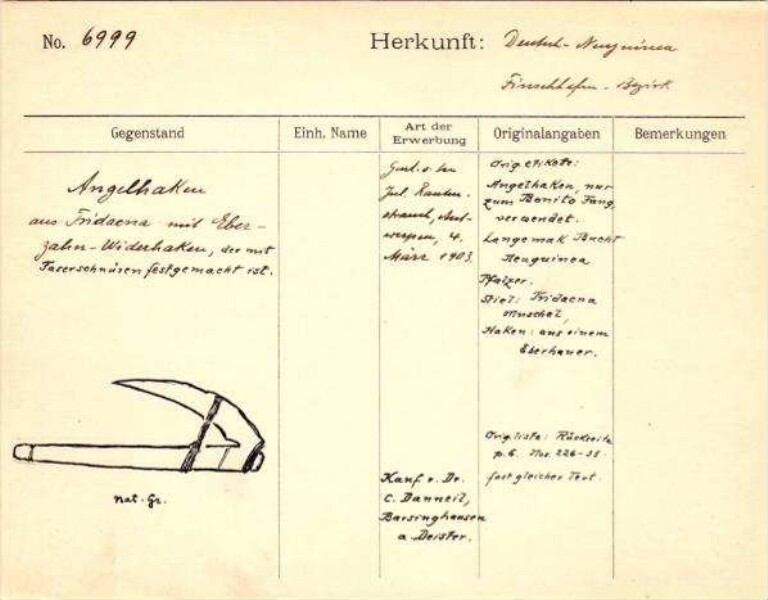 No. 6999
Herkunft: Deutsch-Neuguinea
Finschhafen-Bezirk
Gegenstand
Einh. Name
Art der Erwerbung
Originalangaben
Bemerkungen
Angelhaken
aus Tridacna mit Eber-
zahn-Widerhaken, der mit
Faserschnüren festgemacht ist.
nat. Gr.
Jul. Rauten-
strauch, Ant-
werpen, 4.
März 1903.
Kauf v. Dr.
C. Danneil,
Barsinghausen
a. Deister.
Orig. etikete:
Angelhaken, nur
zum Bonito Fang,
verwendet.
Langemak Bucht
Neuguinea
Pfalzer.
Stiel: Tridacna
Muschel,
Haken: aus einem
Eberhauer.
Orig. liste: Rückseite
p. 6. Nos. 226-38.
fast gleicher Text.